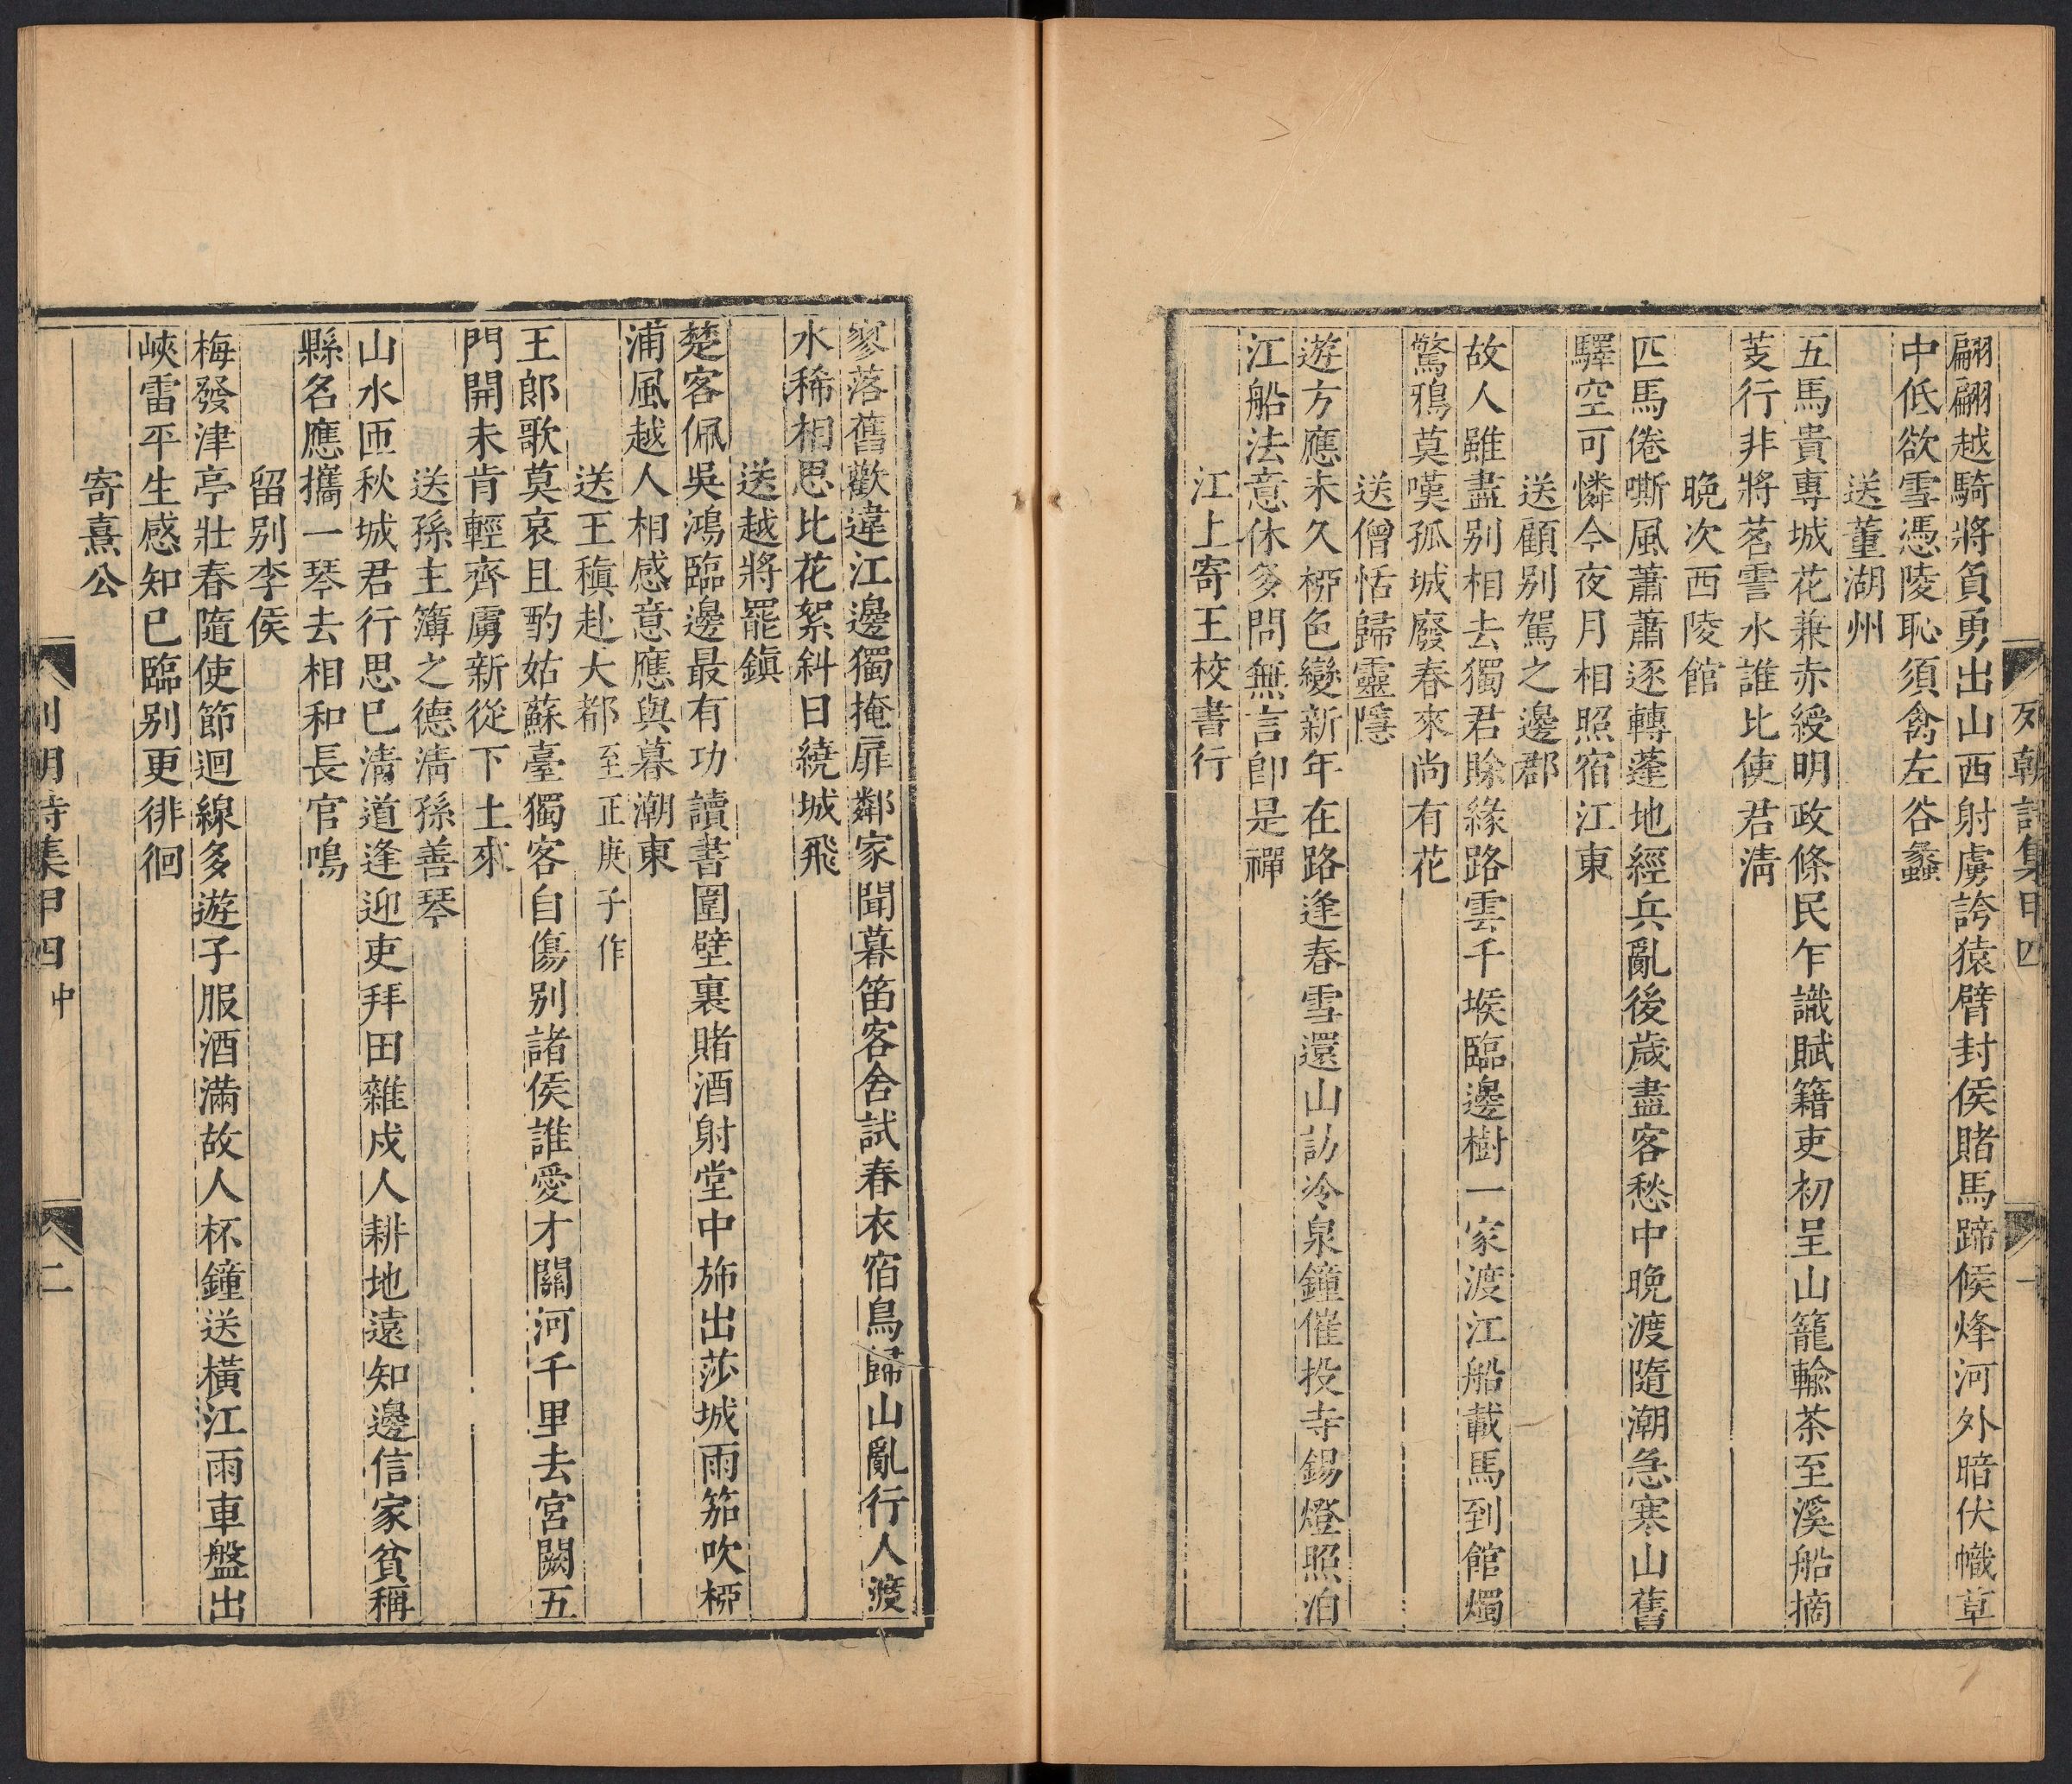 列朝詩集甲四
一
翩翩越騎將負勇出山西射虜誇猿臂封侯賭馬蹄候烽河外暗伏幟草
中低欲雪憑陵恥須禽左谷蠡
送董湖州
五馬貴專城花兼赤綬明政條民乍識賦籍吏初呈山籠輸茶至溪船摘
芰行非將茗霅水誰比使君淸
晚次西陵館
匹馬倦嘶風蕭蕭逐轉蓬地經兵亂後歲盡客愁中晚渡隨潮急寒山舊
驛空可憐今夜月相照宿江東
送顧別駕之邊郡
故人雖盡别相去獨君賒緣路雲千堠臨邊樹一家渡江船載馬到館燭
驚鴉莫嘆孤城廢春來尚有花
送僧恬歸靈隱
遊方應未久桺色變新年在路逢春雪還山訪冷泉鐘催投寺錫燈照泊
江船法意休多問無言卽是禪
江上寄王校書行
寥落舊歡違江邊獨掩扉鄰家聞暮笛客舍試春衣宿鳥歸山亂行人渡
水稀相思比花絮斜日繞城飛
送越將罷鎭
楚客佩吳鴻臨邊最有功讀書圍壁裏賭酒射堂中斾出莎城雨笳吹桺
浦風越人相感意應與暮潮東
送王稹赴大都至正庚子作
王郎歌莫哀且酌姑蘇臺獨客自傷别諸侯誰愛才關河千里去宮闕五
門開未肯輕齊虜新從下土來
送孫主簿之德淸孫善琴
山水匝秋城君行思已淸道逢迎吏拜田雜戍人耕地遠知邊信家貧稱
縣名應攜一琴去相和長官鳴
留别李侯
梅發津亭壯春隨使節迴線多遊子服酒滿故人杯鐘送橫江雨車盤出
峽雷平生感知已臨别更徘徊
寄熹公
列朝詩集甲四中
二